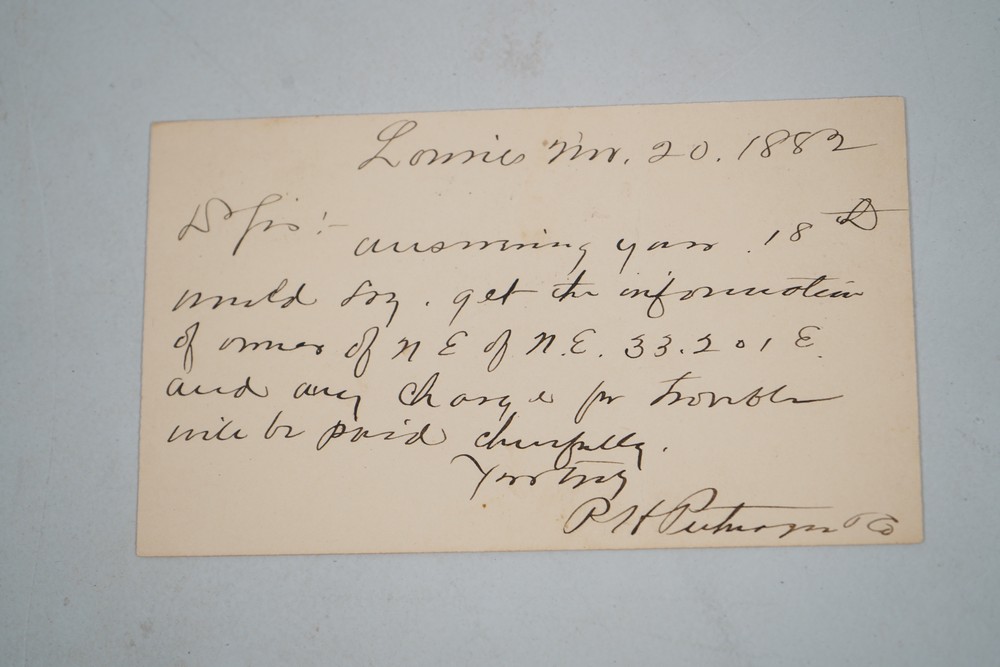 Nov. 20. 1882
Dr Sir:-
answering your 18th
would say. get the information
of owner of N E of N.E. 33.20 1 E.
and any charge for trouble
will be paid cheerfully.
Yours truly
P H & Co